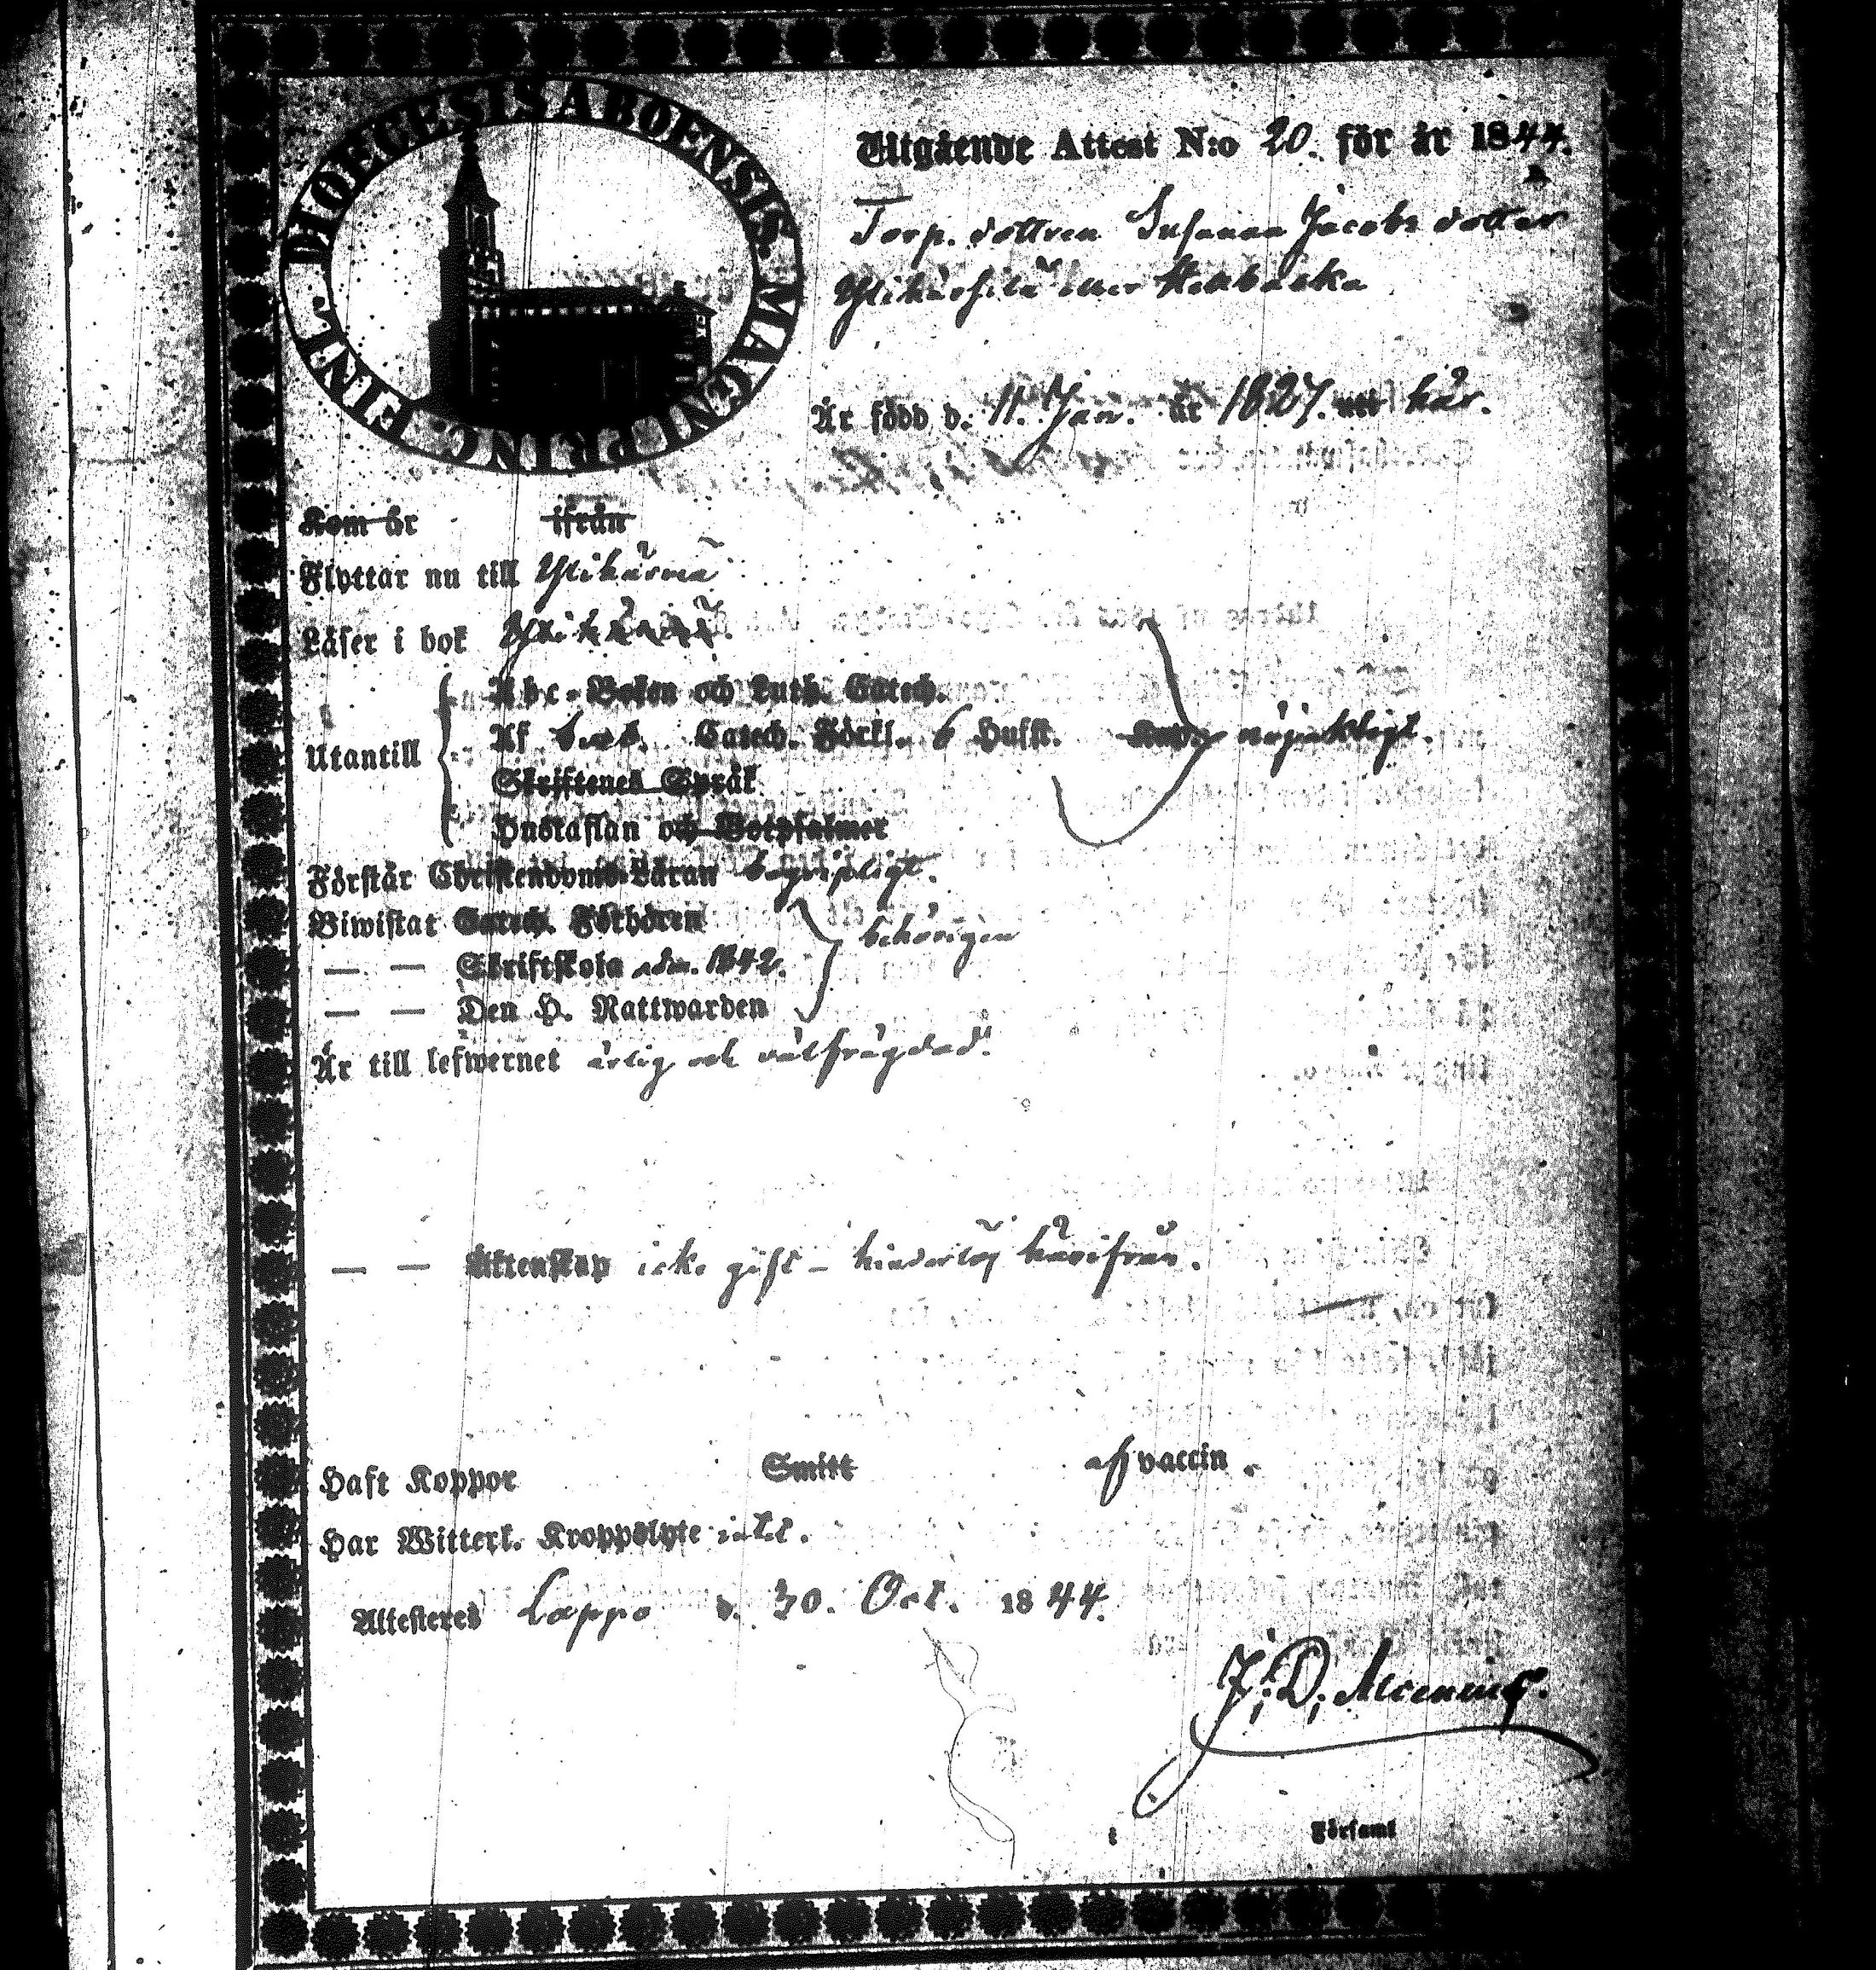 DIOECESIS ABOENSIS. MAGNI PRINC. FINL.
Utgående Attest N:o 20. för år 1844.
Torp. dottren Susanna Jacobs dotter
eller
Är född d. 11. Jan. år 1827. här.
Kom år ifrån
Flyttar nu till Ylikärmä
Läser i bok
Utantill
Abc-Boken och Luth. Catech.
Af Catech. Förkl. 6 Hufst. nöjaktligt.
Skriftenes Språk
Hustaflan och Botpsalmer
Förstår Christendoms-Läran begripligt.
Biwistat Catech. Förhören
— — Skriftskola adm. 1842. behörigen
— — Den H. Nattwarden
Är till lefwernet ärlig och välfrägdad.
— — Äktenskap icke gift – hinderlös härifrån.
Haft Koppor Smitt af vaccin.
Har Witterl. Kroppslyte intet.
Attesteres Lappo d. 30. Oct. 1844.
J. D. Alcenius.
i Församl